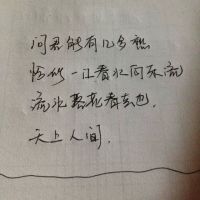 问君能有几多愁
恰似一江春水向东流
流水落花春去也，
天上人间．